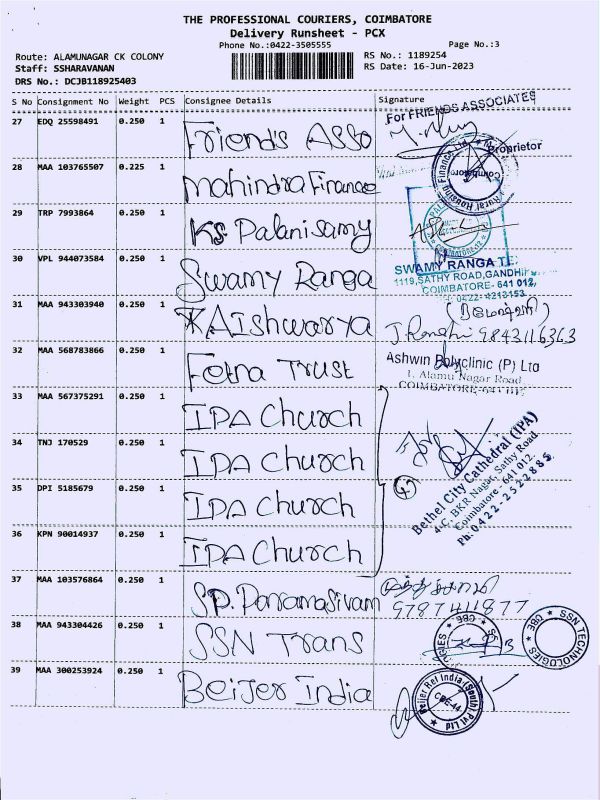 THE PROFESSIONAL COURIERS, COIMBATORE
Delivery Runsheet - PCX
Phone No.:0422-3505555
Page No.:3
Route: ALAMUNAGAR CK COLONY
RS No.: 1189254
Staff: SSHARAVANAN
RS Date: 16-Jun-2023
DRS No.: DCJB118925403
S No Consignment No Weight PCS Consignee Details Signature
27 EDQ 25598491 0.250 1 Friend's Asso
For FRIENDS ASSOCIATES
Proprietor
28 MAA 103765507 0.225 1 Mahindra Finance
Rural Housing Finance Ltd
Coimbatore
29 TRP 7993864 0.250 1 KS Palanisamy
30 VPL 944073584 0.250 1 Swamy Ranga
SWAMY RANGA TE
1119, SATHY ROAD, GANDHI
COIMBATORE- 641 012,
0422- 4213153
31 MAA 943303940 0.250 1 *AIshwarya
9843116363
32 MAA 568783866 0.250 1 Fetna Trust
Ashwin Polyclinic (P) Ltd
1, Alamu Nagar Road
COIMBATORE-641 012
33 MAA 567375291 0.250 1 IPA Church
34 TNJ 170529 0.250 1 IPA Church
35 DPI 5185679 0.250 1 IPA Church
36 KPN 90014937 0.250 1 IPA Church
4
Bethel City Cathedral (IPA)
4-C, BKR Nagar, Sathy Road
Coimbatore - 641 012.
Ph: 0422-2522885
37 MAA 103576864 0.250 1 SP. Paramasivam
9787411877
38 MAA 943304426 0.250 1 SSN Trans
SSN TECHNOLOGIES
CBE
39 MAA 300253924 0.250 1 Beijer India
Beijer Ref India (South) Pvt Ltd
CBE-44